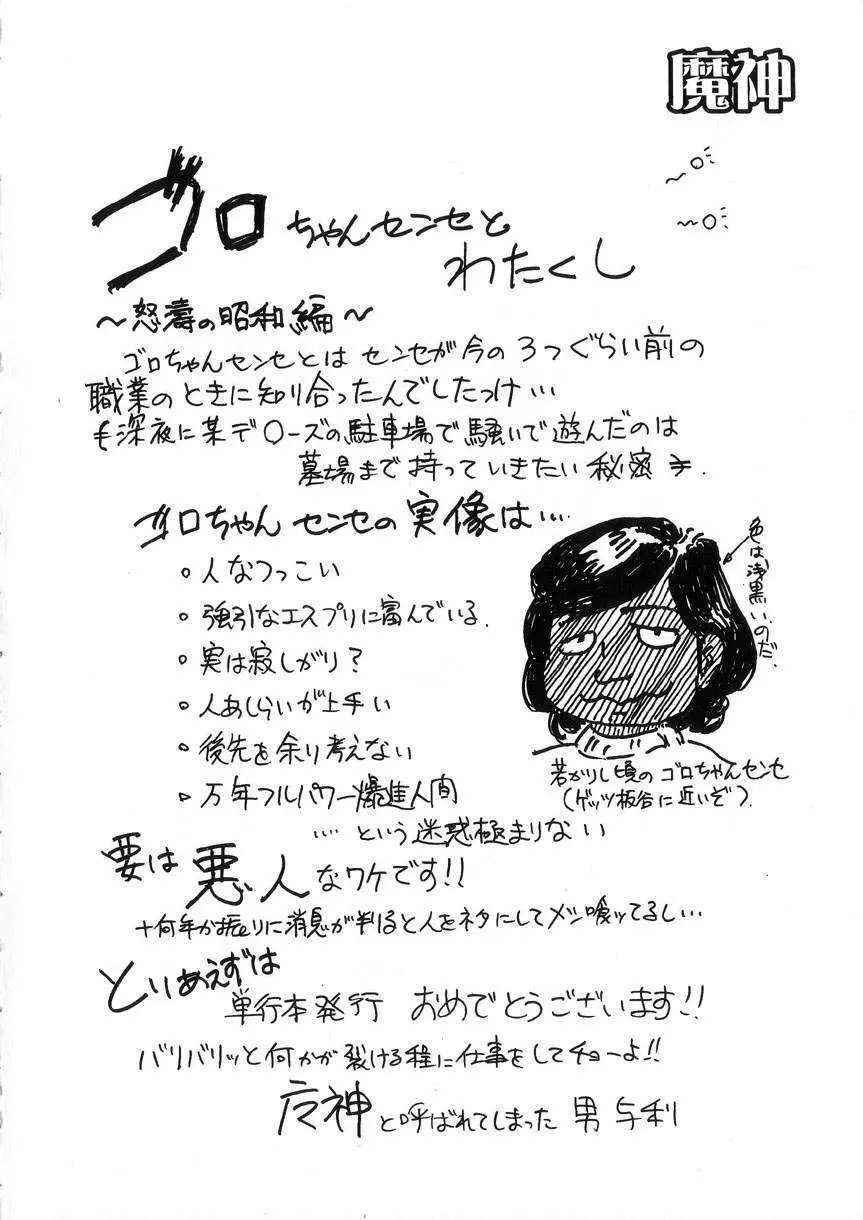 魔神
ゴロちゃんセンセと
わたくし
～怒濤の昭和編～
ゴロちゃんセンセとは センセが今の3つぐらい前の
職業のときに知り合ったんでしたっけ…
深夜に某デ○ーズの駐車場で騒いで遊んだのは
墓場まで持っていきたい秘密
ゴロちゃんセンセの実像は…
○人なつっこい
○強引なエスプリに富んでいる.
○実は寂しがり?
○人あしらいが上手い
○後先を余り考えない
○万年フルパワー爆進人間
…という迷惑極まりない
色は浅黒いのだ.
若かりし頃のゴロちゃんセンセ
(ゲッツ板谷に近いぞ).
要は悪人なワケです!!
十何年か振りに消息が判ると人をネタにしてメシ喰ってるし…
とりあえずは
単行本発行 おめでとうございます!!
バリバリッと何かが裂ける程に仕事をしてチョーよ!!
神と呼ばれてしまった男 与利